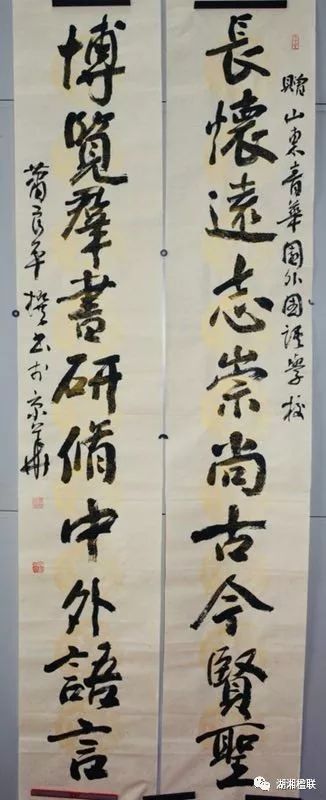 贈山東華園外國語學校
長懷遠志崇尚古今賢聖
博覽羣書研脩中外語言
蕭良平撰书於京華
湖湘楹联